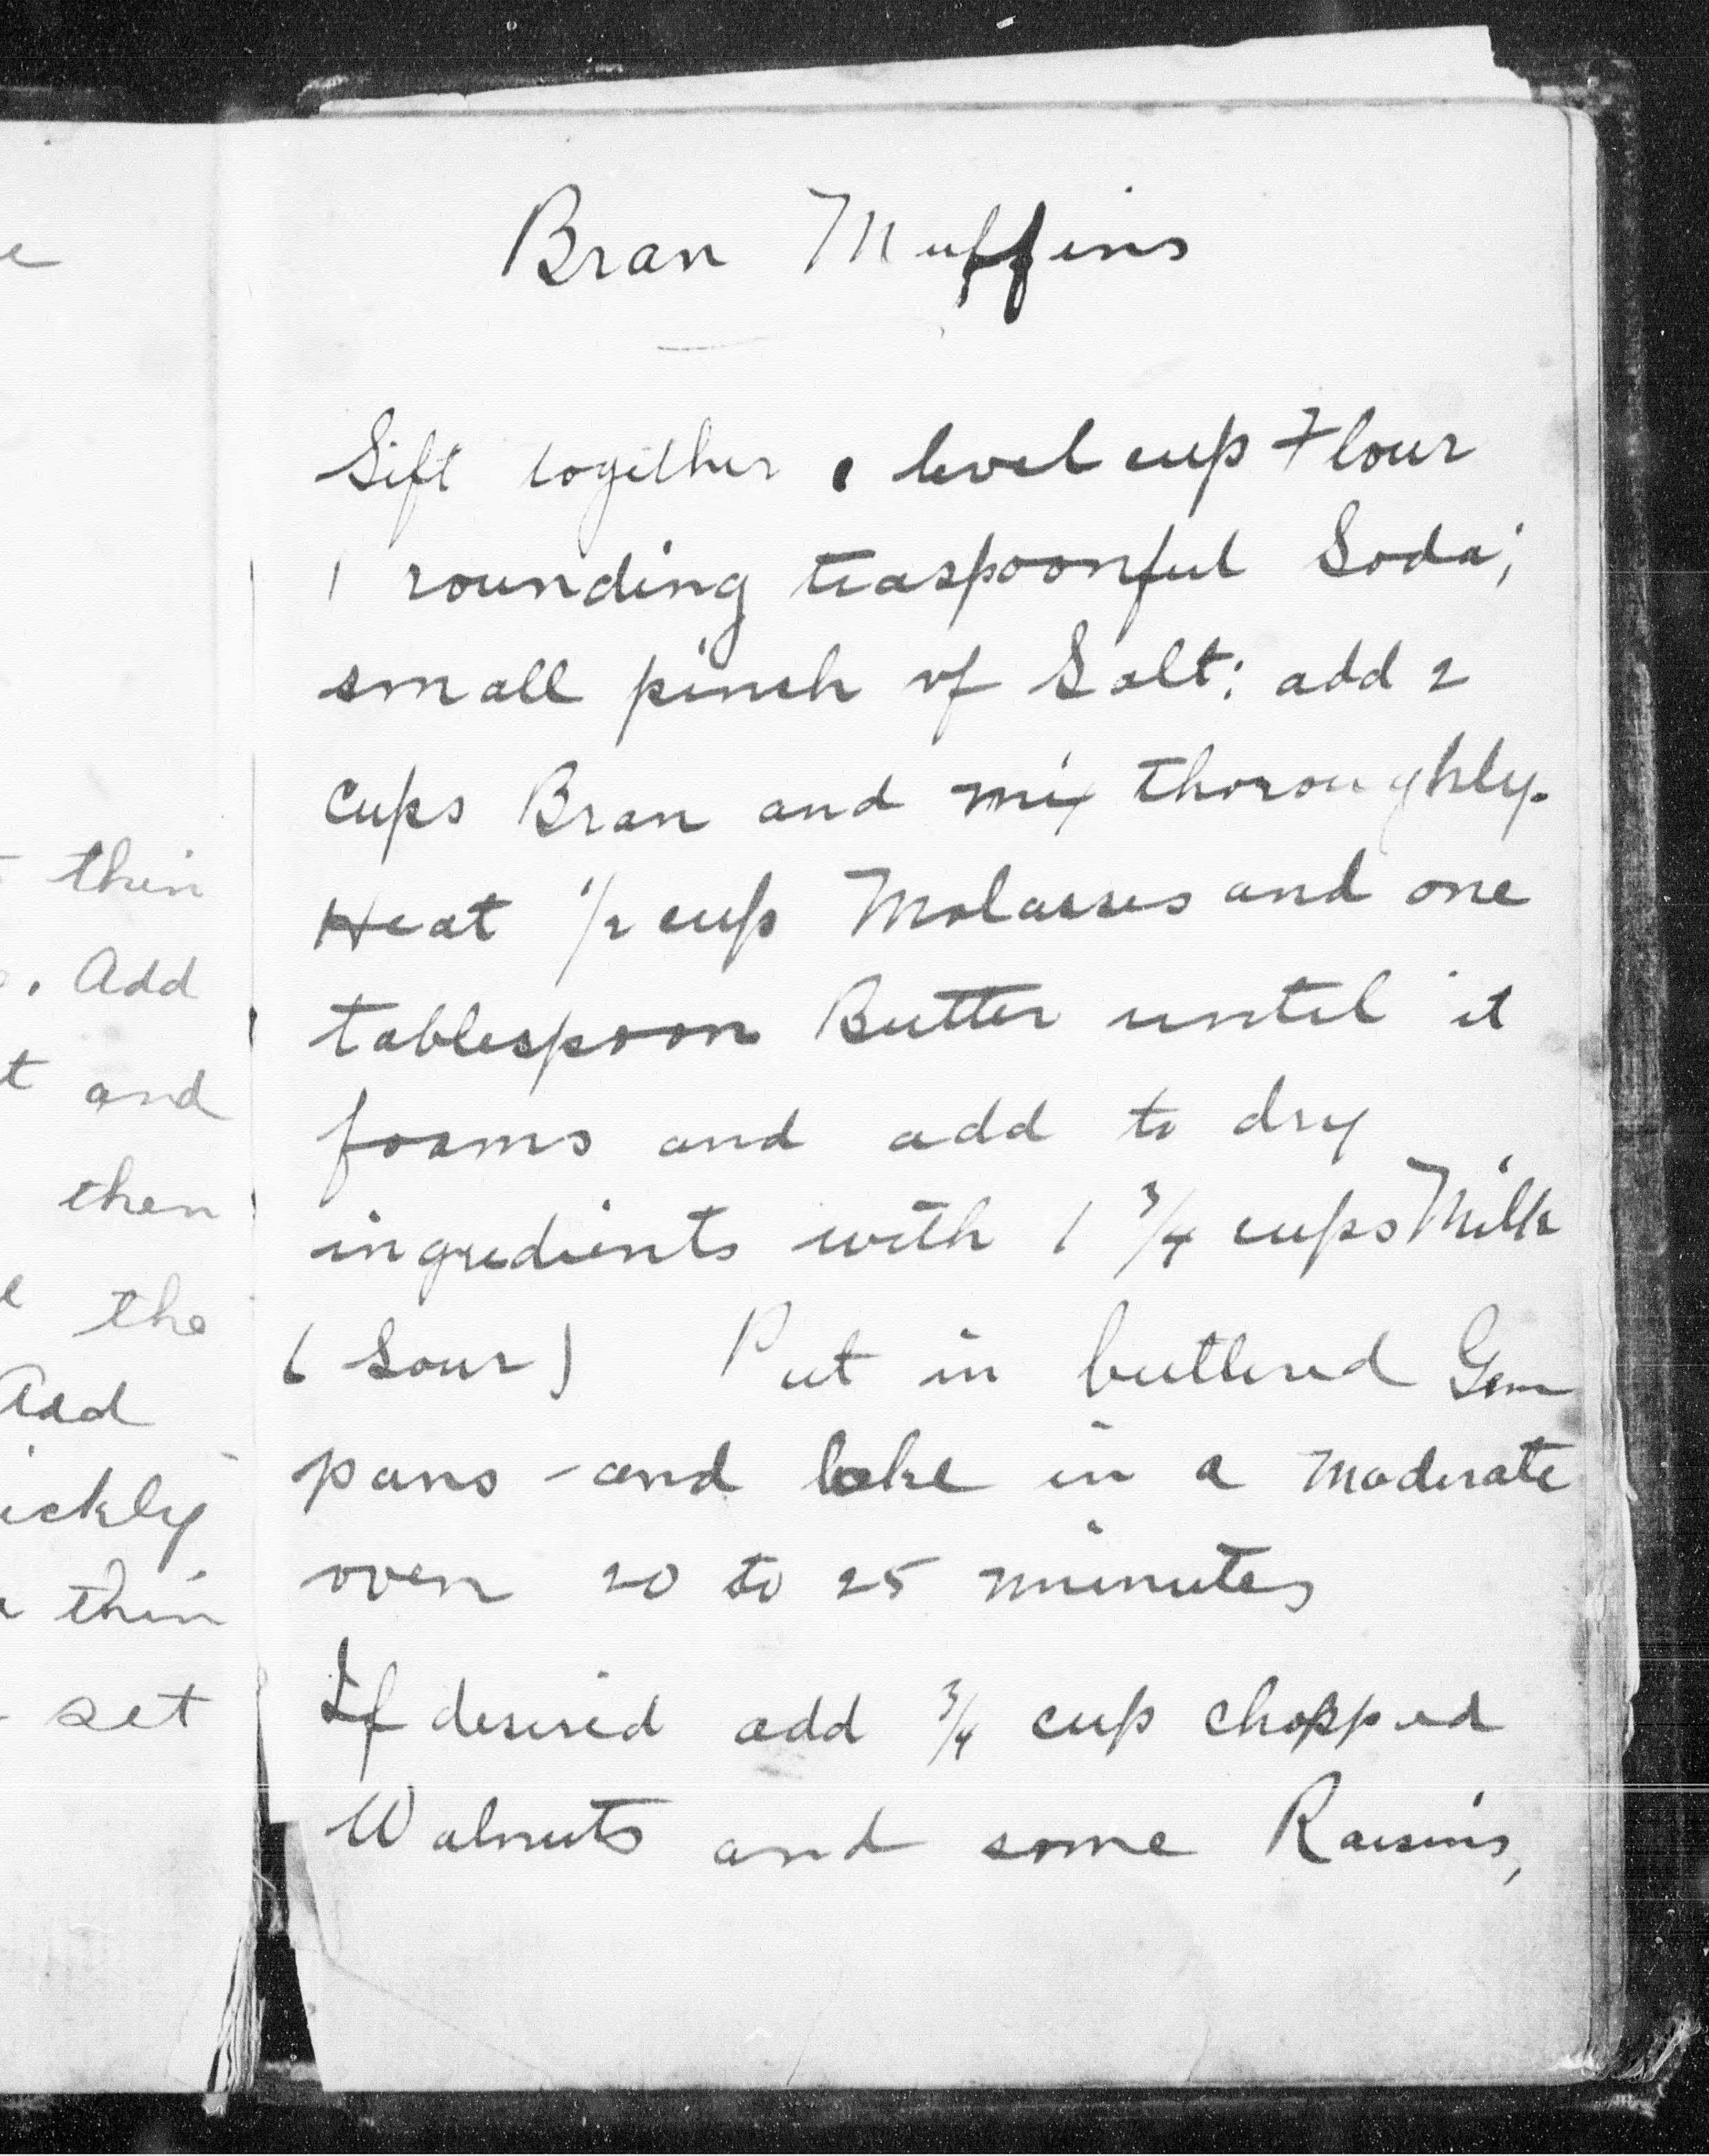 e
thin
. Add
t and
then
the
Add
ickly
thin
set
Bran Muffins
Sift together 1 level cup Flour
1 rounding teaspoonful Soda;
small pinch of Salt; add 2
cups Bran and mix thoroughly.
Heat 1/2 cup Molasses and one
tablespoon Butter until it
foams and add to dry
ingredients with 1 3/4 cups Milk
(Sour) Put in buttered Gem
pans - and bake in a moderate
oven 20 to 25 minutes
If desired add 3/4 cup chopped
Walnuts and some Raisins,